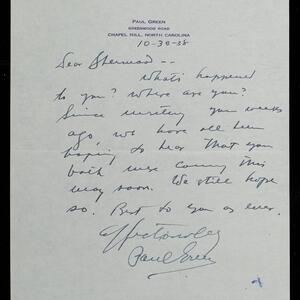 PAUL GREEN
GREENWOOD ROAD
CHAPEL HILL, NORTH CAROLINA
10-30-38
Dear Sherwood --
What's happened
to you? Where are you?
Since writing you weeks
ago, we have all been
hoping to hear that you
both were coming this
way soon. We still hope
so. Best to you as ever.
Affectionately
Paul Green